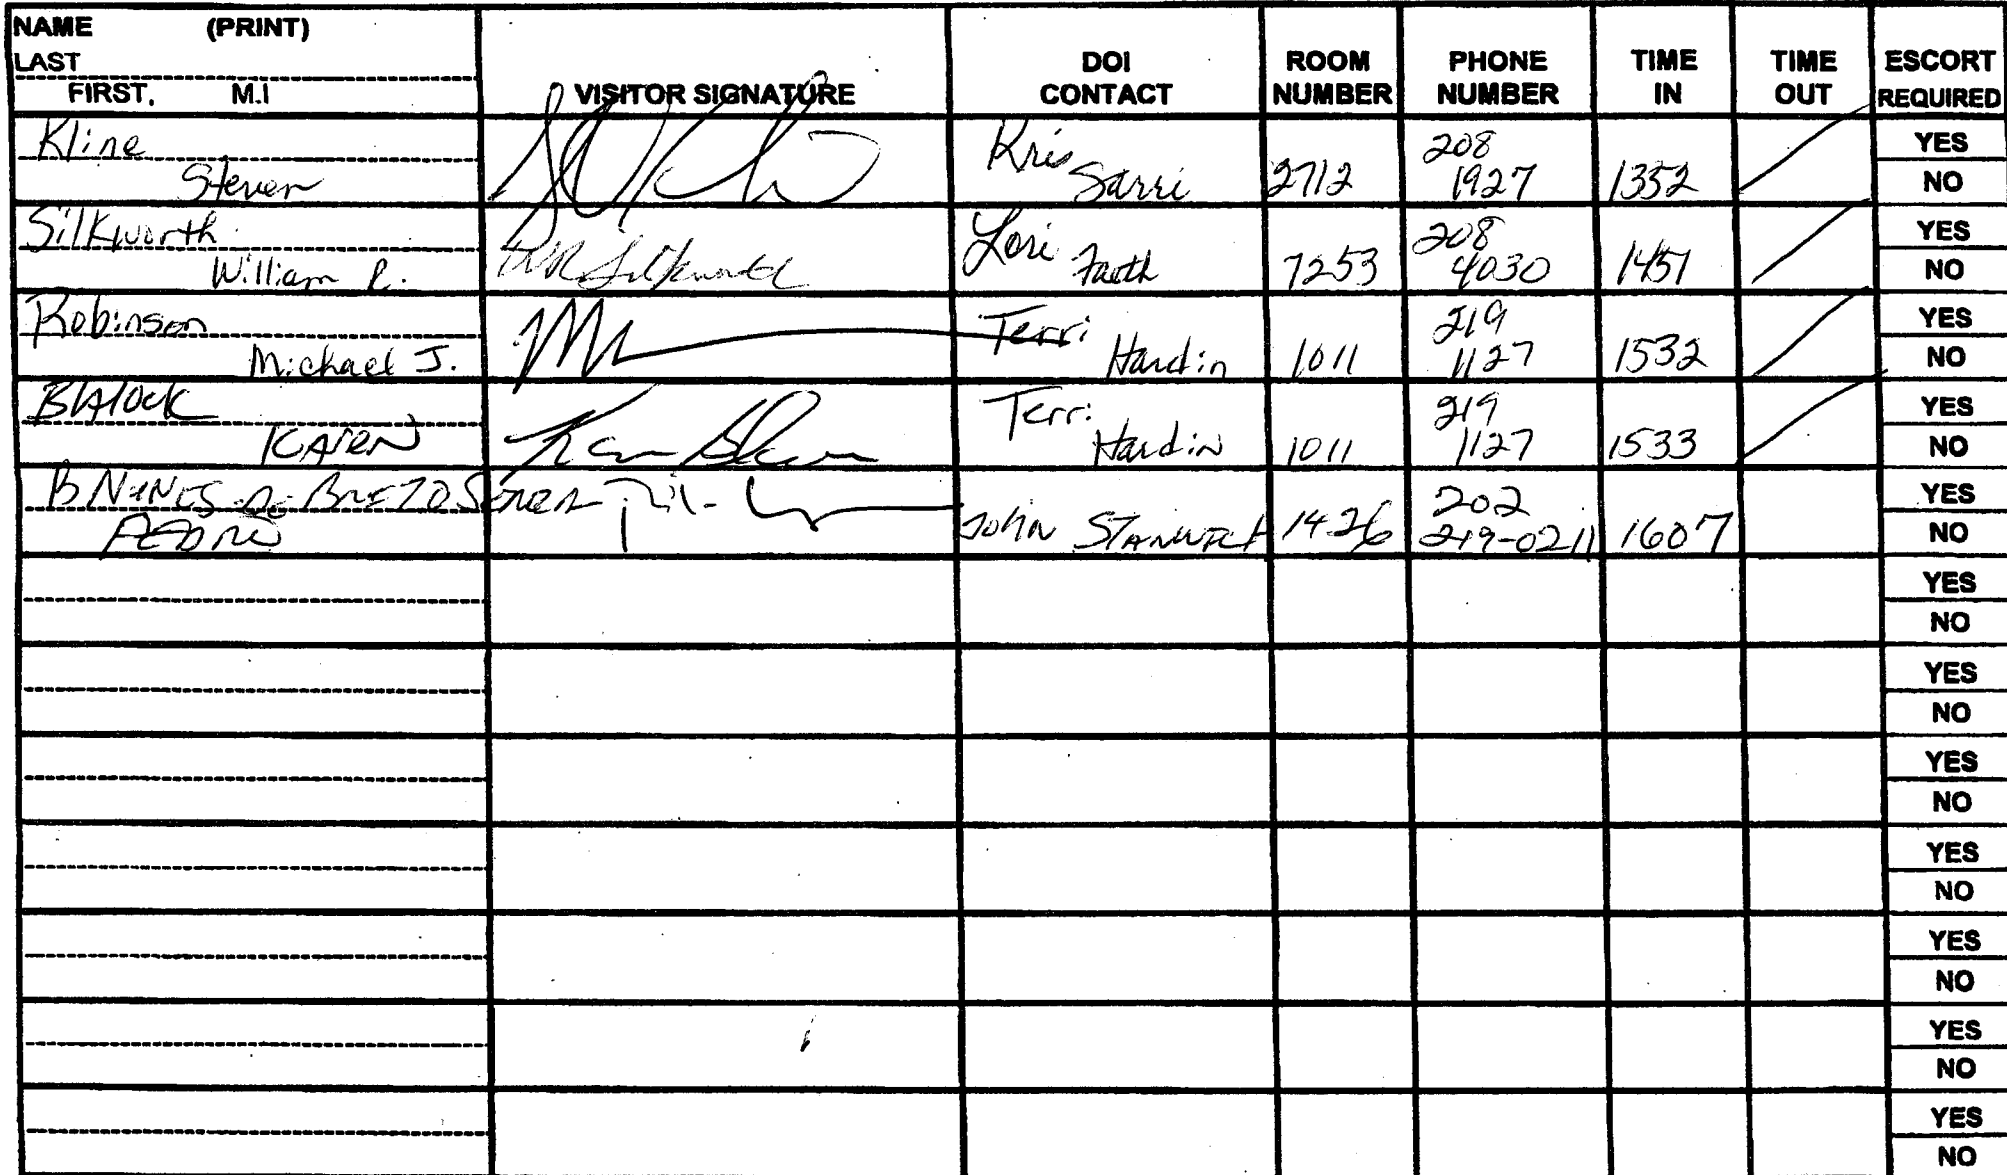 NAME (PRINT)
LAST
FIRST, M.I
VISITOR SIGNATURE
DOI CONTACT
ROOM NUMBER
PHONE NUMBER
TIME IN
TIME OUT
ESCORT REQUIRED
Kline
Steven
Kris Sarri
2712
208 1927
1352
YES
NO
Silkworth
William R.
WR Silkworth
Lori Faeth
7253
208 4030
1451
YES
NO
Robinson
Michael J.
Terri Hardin
1011
219 1127
1532
YES
NO
Blalock
KAREN
Terri Hardin
1011
219 1127
1533
YES
NO
PEDRO
JOHN
1426
202
219-0211
1607
YES
NO
YES
NO
YES
NO
YES
NO
YES
NO
YES
NO
YES
NO
YES
NO